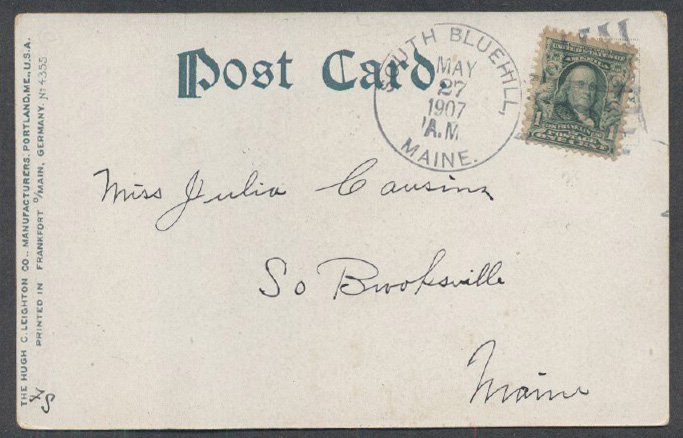 Post Card.
SOUTH BLUEHILL,
MAY
27
1907
A.M.
MAINE.
1
1
POSTAGE
ONE CENT
Miss Julia Cousins
So Brooksville
Maine
THE HUGH C. LEIGHTON CO., MANUFACTURERS, PORTLAND, ME., U.S.A.
PRINTED IN FRANKFORT O/MAIN, GERMANY. No 4355